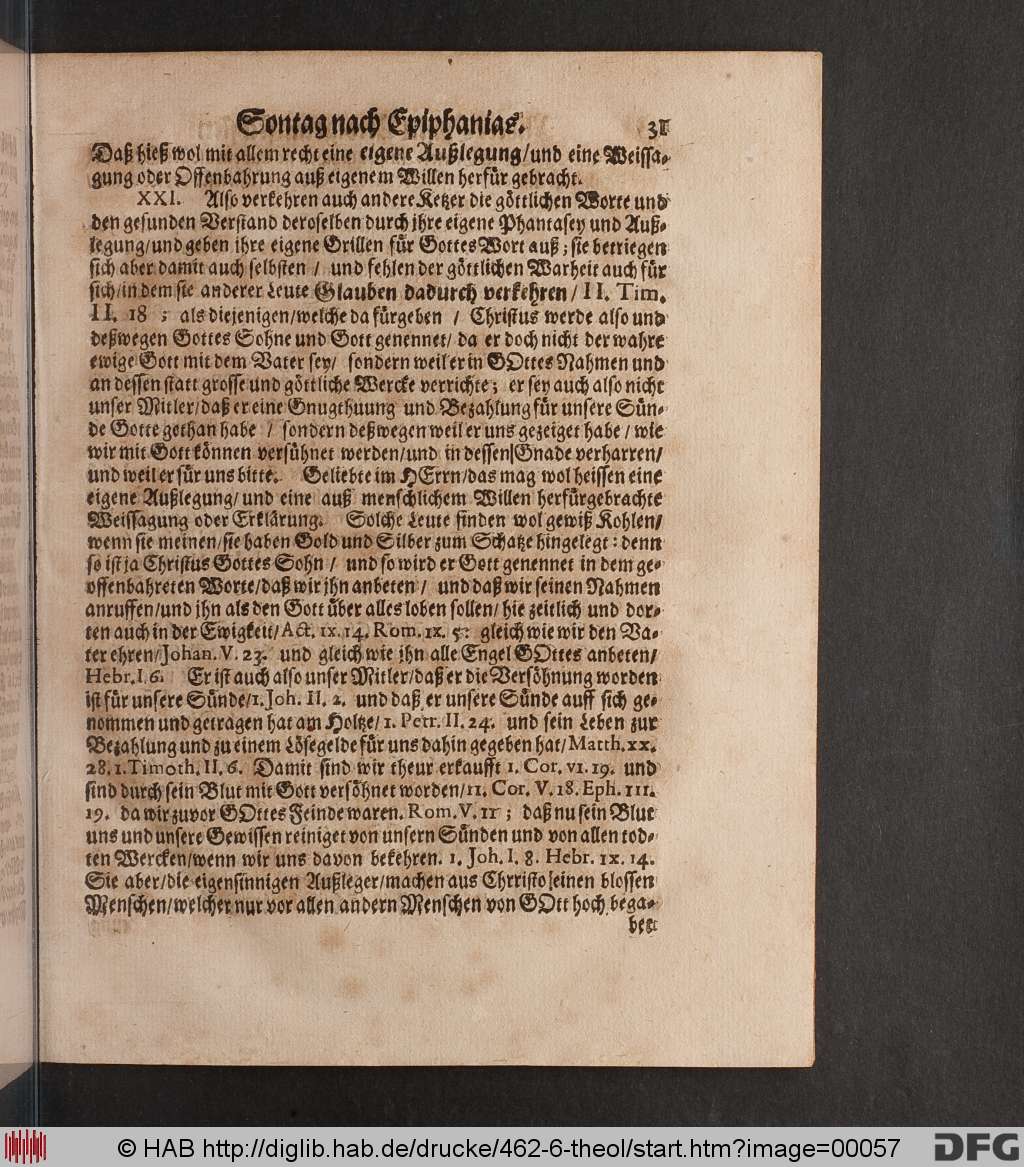 Sontag nach Epiphanias. 31
Daß hieß wol mit allem recht eine eigene Außlegung/und eine Weissa-
gung oder Offenbahrung auß eigenem Willen herfür gebracht.
XXI. Also verkehren auch andere Ketzer die göttlichen Worte und
den gesunden Verstand deroselben durch jhre eigene Phantasey und Auß-
legung/und geben ihre eigene Grillen für Gottes Wort auß; sie betriegen
sich aber damit auch selbsten / und fehlen der göttlichen Warheit auch für
sich/in dem sie anderer Leute Glauben dadurch verkehren/ II. Tim.
II. 18 ; als diejenigen/welche da fürgeben / Christus werde also und
deßwegen Gottes Sohne und Gott genennet/ da er doch nicht der wahre
ewige Gott mit dem Vater sey/ sondern weil er in GOttes Nahmen und
an dessen statt grosse und göttliche Wercke verrichte; er sey auch also nicht
unser Mitler/daß er eine Gnugthuung und Bezahlung für unsere Sün-
de Gotte gethan habe / sondern deßwegen weil er uns gezeiget habe/ wie
wir mit Gott können versühnet werden/und in dessen Gnade verharren/
und weil er für uns bitte. Geliebte im HErrn/das mag wol heissen eine
eigene Außlegung/ und eine auß menschlichem Willen herfürgebrachte
Weissagung oder Erklärung. Solche Leute finden wol gewiß Kohlen/
wenn sie meinen/sie haben Gold und Silber zum Schatze hingelegt: denn
so ist ja Christus Gottes Sohn / und so wird er Gott genennet in dem ge-
offenbahreten Worte/daß wir jhn anbeten / und daß wir seinen Nahmen
anruffen/und jhn als den Gott über alles loben sollen/ hie zeitlich und dor-
ten auch in der Ewigkeit/Act. IX. 14. Rom. IX. 5: gleich wie wir den Va-
ter ehren/Johan. V. 23. und gleich wie jhn alle Engel GOttes anbeten/
Hebr. I. 6. Er ist auch also unser Mitler/daß er die Versöhnung worden
ist für unsere Sünde/1. Joh. II. 2. und daß er unsere Sünde auff sich ge-
nommen und getragen hat am Holtze/1. Petr. II. 24. und sein Leben zur
Bezahlung und zu einem Lösegelde für uns dahin gegeben hat/Matth. XX.
28. 1. Timoth. II. 6. Damit sind wir theur erkaufft 1. Cor. VI. 19. und
sind durch sein Blut mit Gott versöhnet worden/II. Cor. V. 18. Eph. III.
19. da wir zuvor GOttes Feinde waren. Rom. V. 11 ; daß nu sein Blut
uns und unsere Gewissen reiniget von unsern Sünden und von allen tod-
ten Wercken/wenn wir uns davon bekehren. 1. Joh. I. 8. Hebr. IX. 14.
Sie aber/die eigensinnigen Außleger/machen aus Chrristo einen blossen
Menschen/welcher nur vor allen andern Menschen von GOtt hoch bega-
bet
© HAB http://diglib.hab.de/drucke/462-6-theol/start.htm?image=00057
DFG